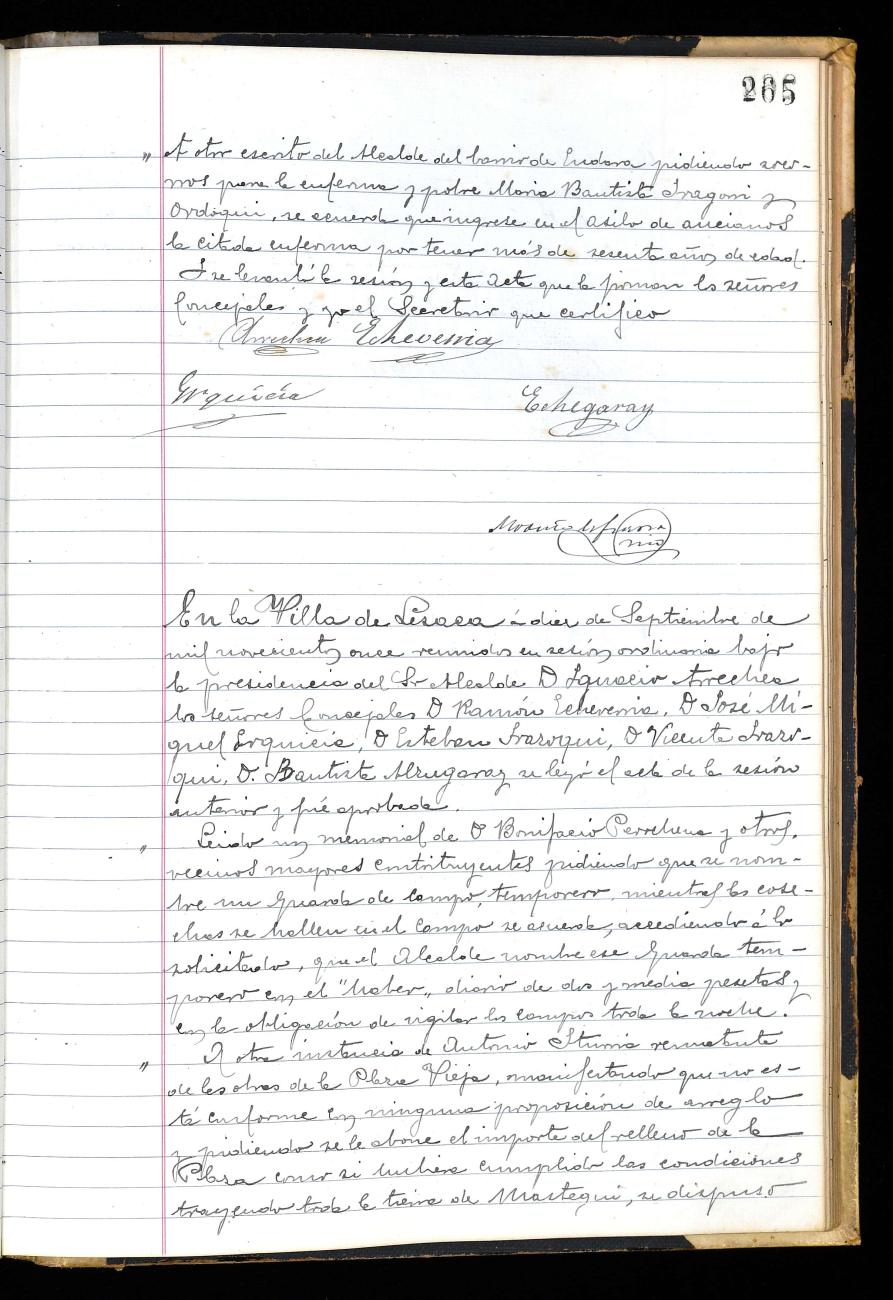 265
" A otro escrito del Alcalde del barrio de Endara pidiendo socor-
rros para la enferma y pobre Maria Bautista Iragorri y
Ordoqui, se acuerda que ingrese en el asilo de ancianos
la citada enferma por tener más de sesenta años de edad.
Y se levantó la sesión y esta Acta que la firman los señores
Concejales y yo el Secretario que certifico
Arrechea Echeverria
Yrquicia Echegaray
En la Villa de Lesaca á diez de Septiembre de
mil novecientos once reunidos en sesión ordinaria bajo
la presidencia del Sr Alcalde D Ignacio Arrechea
los señores Concejales D Ramón Echeverria, D José Mi-
guel Irquicia, D Esteban Irazoqui, D Vicente Irazo-
qui, D. Bautista Alzugaray se leyó el acta de la sesión
anterior y fué aprobada.
" Leido un memorial de D Bonifacio Perrchena y otros,
vecinos mayores contribuyentes pidiendo que se nom-
bre un guarda de campo, temporero, mientras las cose-
chas se hallen en el campo se acuerda, accediendo á lo
solicitado, que el Alcalde nombre ese guarda tem-
porero con el "Haber" diario de dos y media pesetas y
con la obligación de vigilar los campos toda la noche.
" A otra instancia de Antonio Iturria rematante
de las obras de la Plaza Vieja, manifestando que no es-
tá conforme con ninguna proposición de arreglo
y pidiendo se le abone el importe del relleno de la
Plaza como si hubiera cumplido las condiciones
trayendo toda la tierra de Mastegui, se dispuso